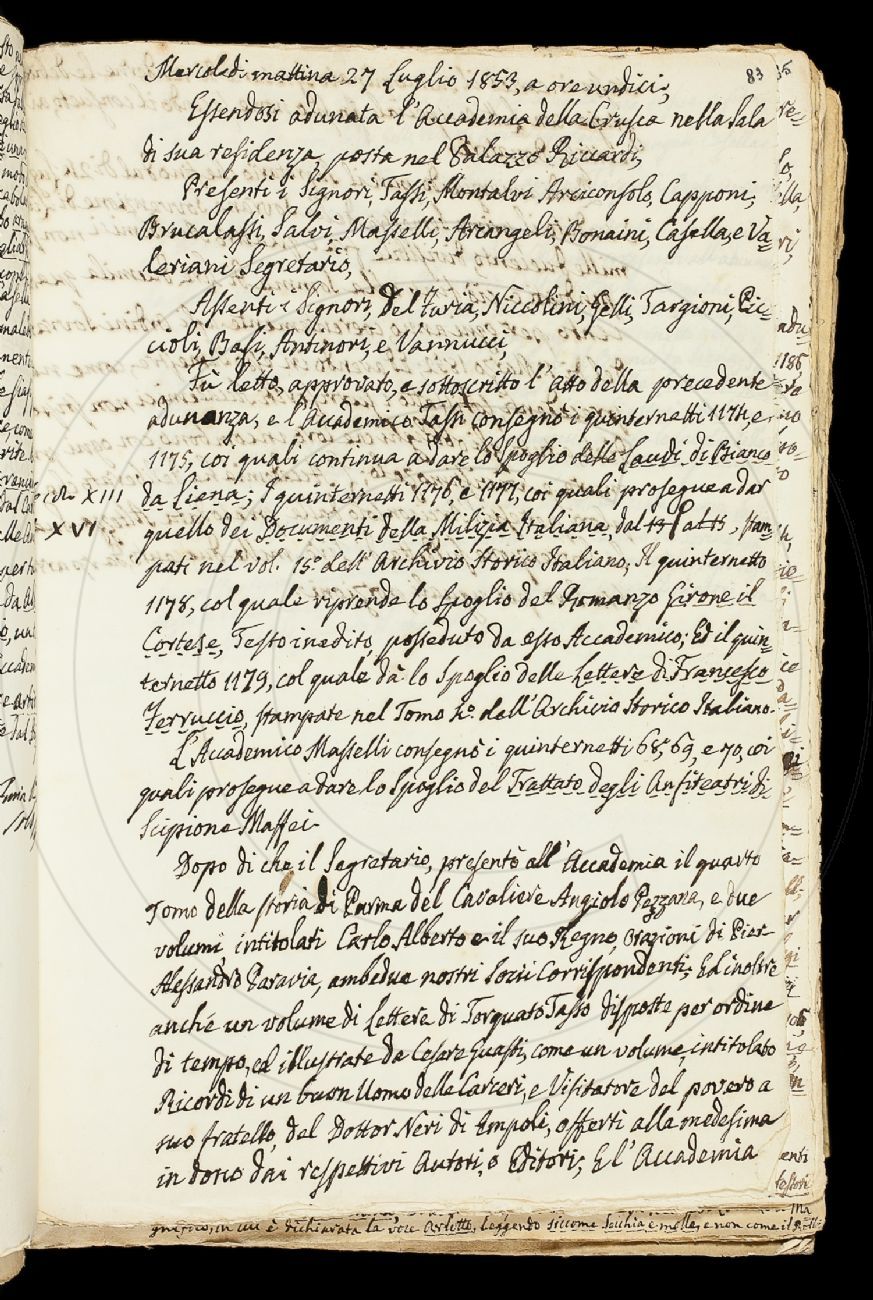 83
Mercoledi mattina 27 Luglio 1853, a ore undici,
Essendosi adunata l'Accademia della Crusca nella Sala
di sua residenza, posta nel Palazzo Riccardi,
Presenti i Signori, Tassi, Montalvi Arciconsolo, Capponi,
Brucalassi, Salvi, Masselli, Arcangeli, Bonaini, Casella, e Va=
leriani Segretario,
Assenti i Signori, del Furia, Niccolini, Gelli, Targioni, Pic=
cioli, Basi, Antinori, e Vannucci,
Fù letto, approvato, e sottoscritto l'atto della precedente
adunanza, e l'Accademico Tassi consegnò i quinternetti 1174, e
1175, coi quali continua a dare lo Spoglio delle Laudi di Bianco
da Siena; I quinternetti 1176, e 1177, coi quali prosegue a dar
XIII
quello dei Documenti della Milizia Italiana, dal al , stam
XVI
pati nel vol. 15.o dell'Archivio Storico Italiano; Il quinternetto
1178, col quale riprende lo Spoglio del Romanzo Girone il
Cortese, Testo inedito, posseduto da esso Accademico; Ed il quin=
ternetto 1179, col quale dà lo Spoglio delle Lettere di Francesco
Ferruccio, stampate nel Tomo 4.o dell'Archivio Storico Italiano.
L'Accademico Masselli consegnò i quinternetti 68, 69, e 70, coi
quali prosegue a dare lo Spoglio del Trattato degli Anfiteatri di
Scipione Maffei.
Dopo di che il Segretario, presentò all'Accademia il quarto
Tomo della storia di Parma del Cavaliere Angiolo Pezzana, e due
volumi, intitolati Carlo Alberto e il suo Regno, orazioni di Pier-
Alessandro Paravia, ambedue nostri Socii Corrispondenti; Ed inoltre
anche un volume di Lettere di Torquato Tasso disposte per ordine
di tempo, ed illustrate da Cesare Guasti, come un volume, intitolato
Ricordi di un buon Uomo delle Carceri, e Visitatore del povero a
suo fratello, del Dottor Neri di Empoli, offerti alla medesima
in dono dai respettivi Autori, o Editori; E l'Accademia
in cui è dichiarata la voce Arlotto, leggendo siccome Secchia e molle, e non come il